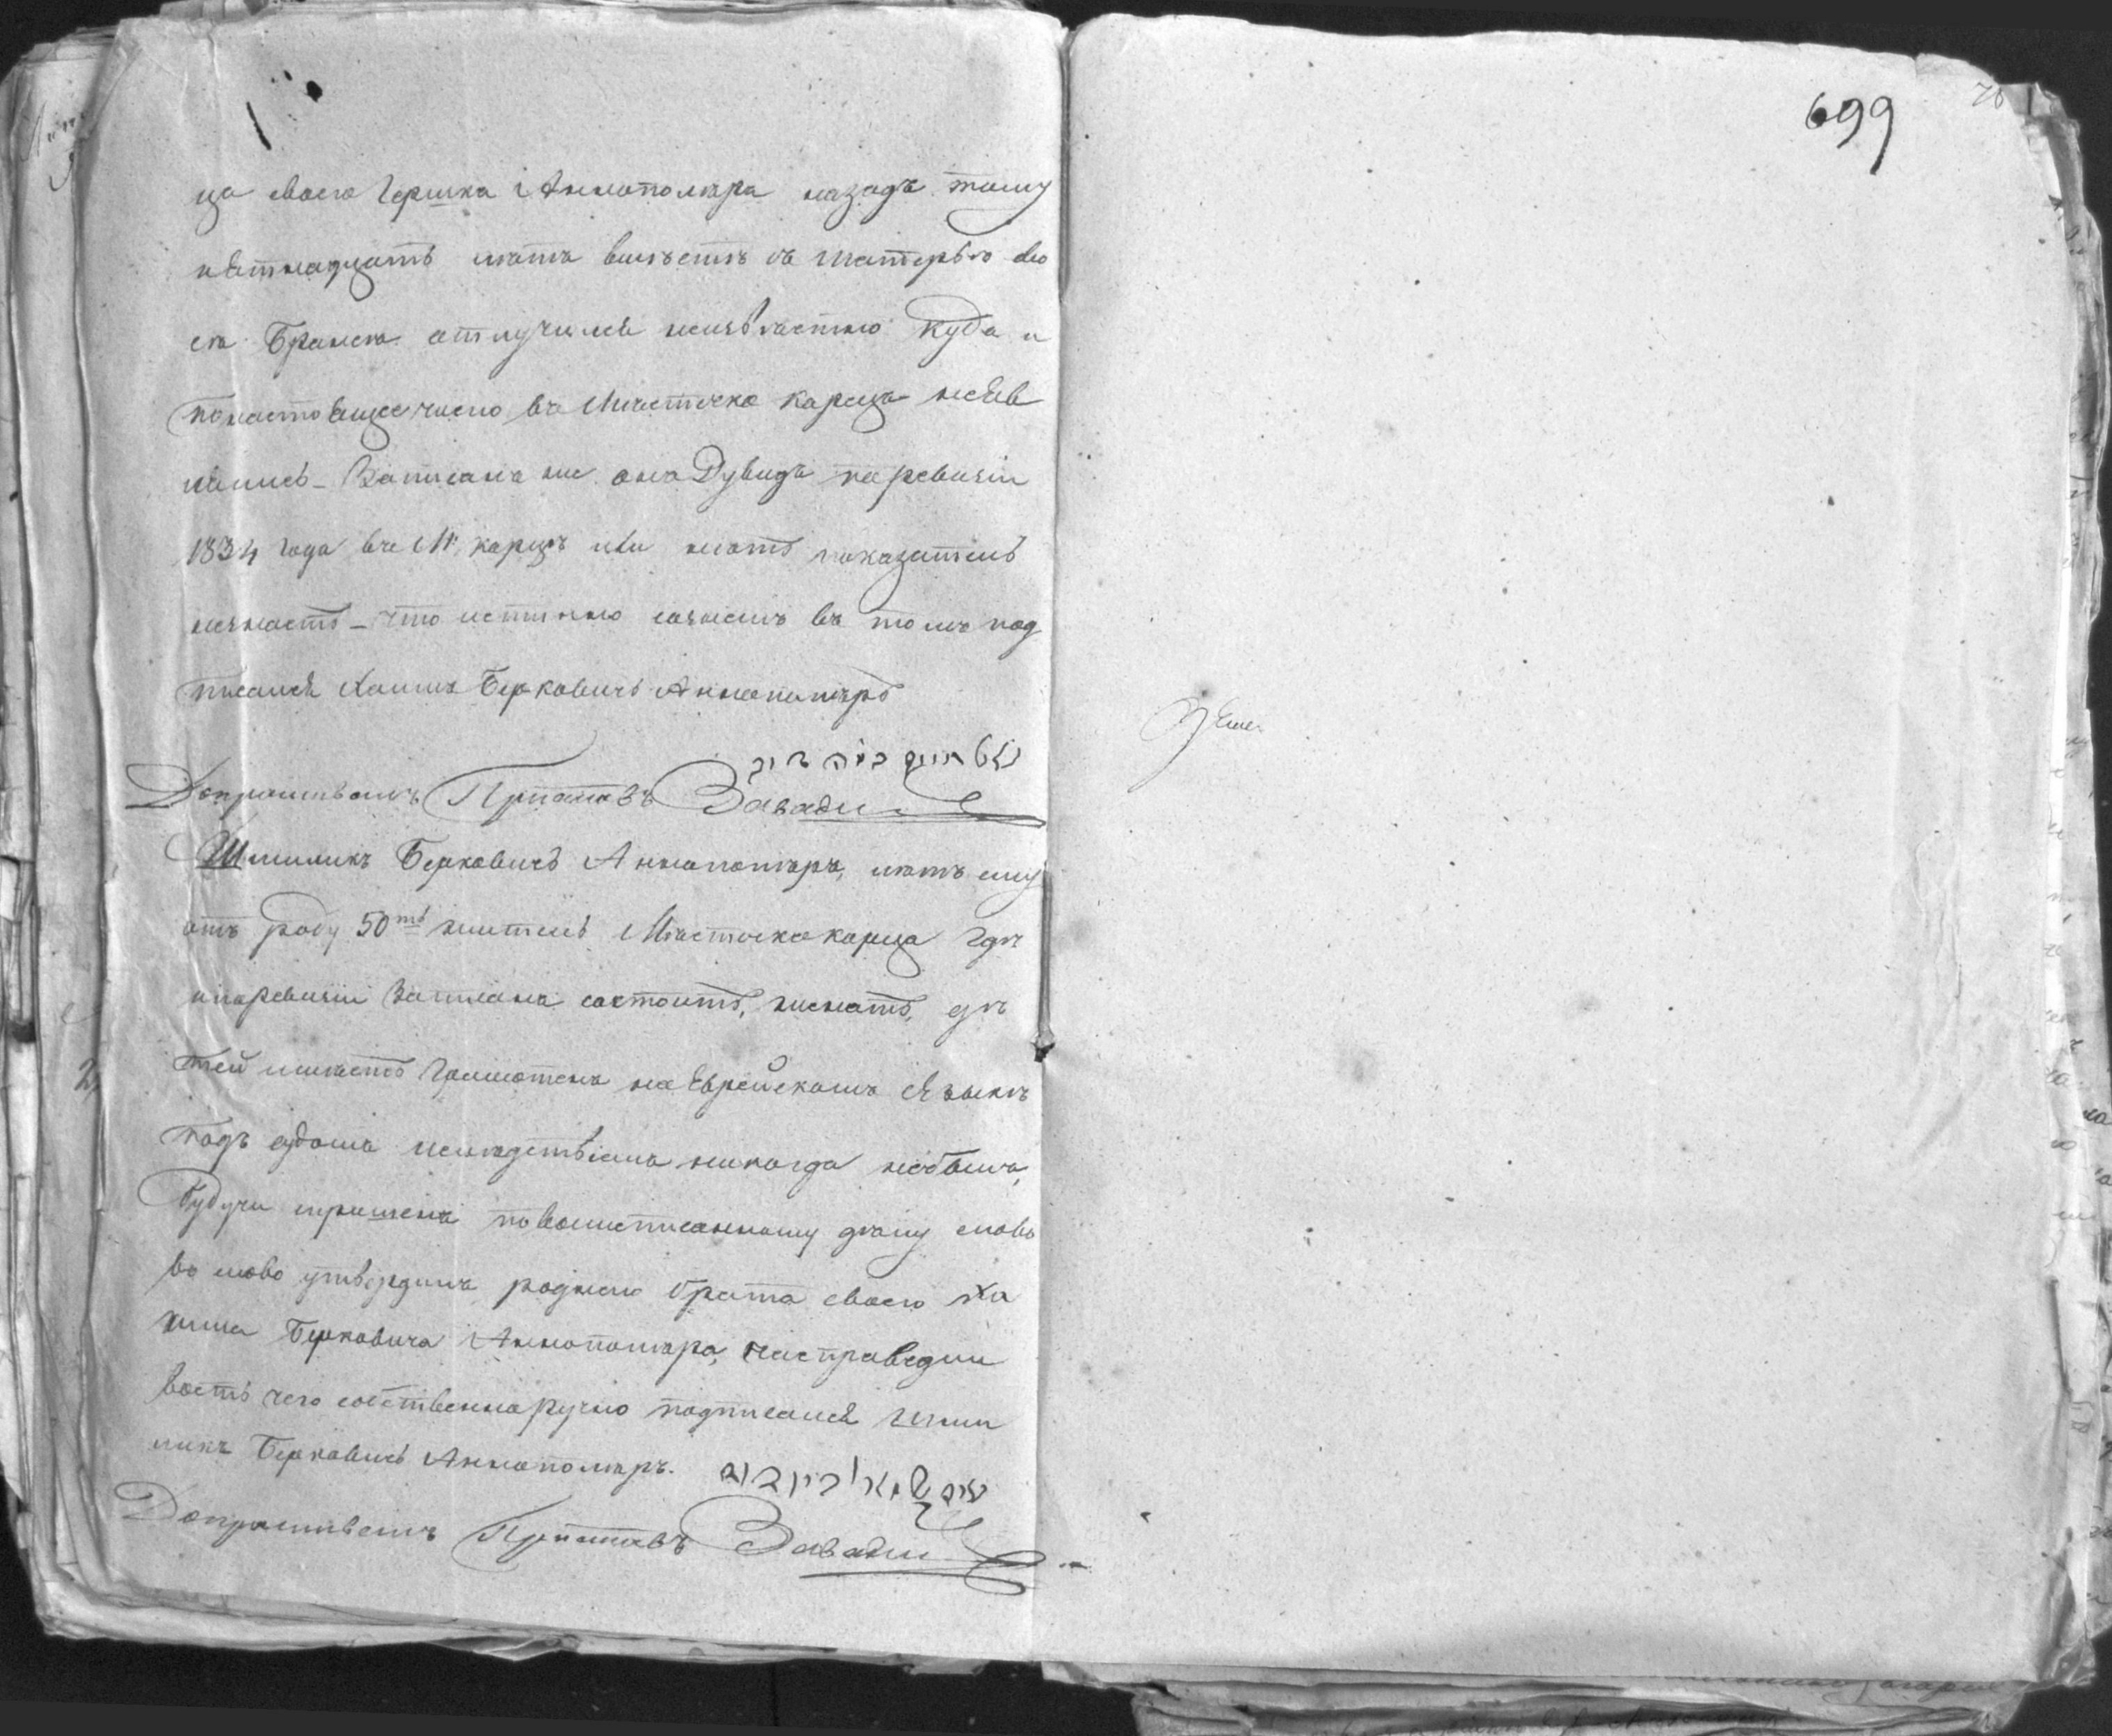 699
ца своего Гершка Аннополера назадъ тому
пятнадцать летъ вместе съ Матерью его
отлучился неизвестно куда и
понастоящее число въ Местечко Карецъ неяв
лялись – Записанъ ли онъ Дувидъ поревизіи
1834 года въ М. Карце или нетъ показатель
незнаетъ – что истинно сознаюсь въ томъ под
писался Хаимъ Берковичъ Аннополеръ
Допрашивалъ Приставъ Завадзки
Шмиликъ Берковичъ Аннополеръ, летъ ему
отъ роду 50ть житель Местечка Карца где
ипоревизіи записанъ состоитъ, женатъ, де
тей имеетъ Грамотенъ на Еврейскомъ языке
подъ судомъ иследствіемъ никогда небылъ,
Будучи спрошенъ повышеписанному делу слово
во слово утвердилъ роднаго брата своего Ха
има Берковича Аннополера, насправедли
вость чего собственноручно подписался Шми
ликъ Берковичъ Аннополеръ.
Допрашивалъ Приставъ Завадзки